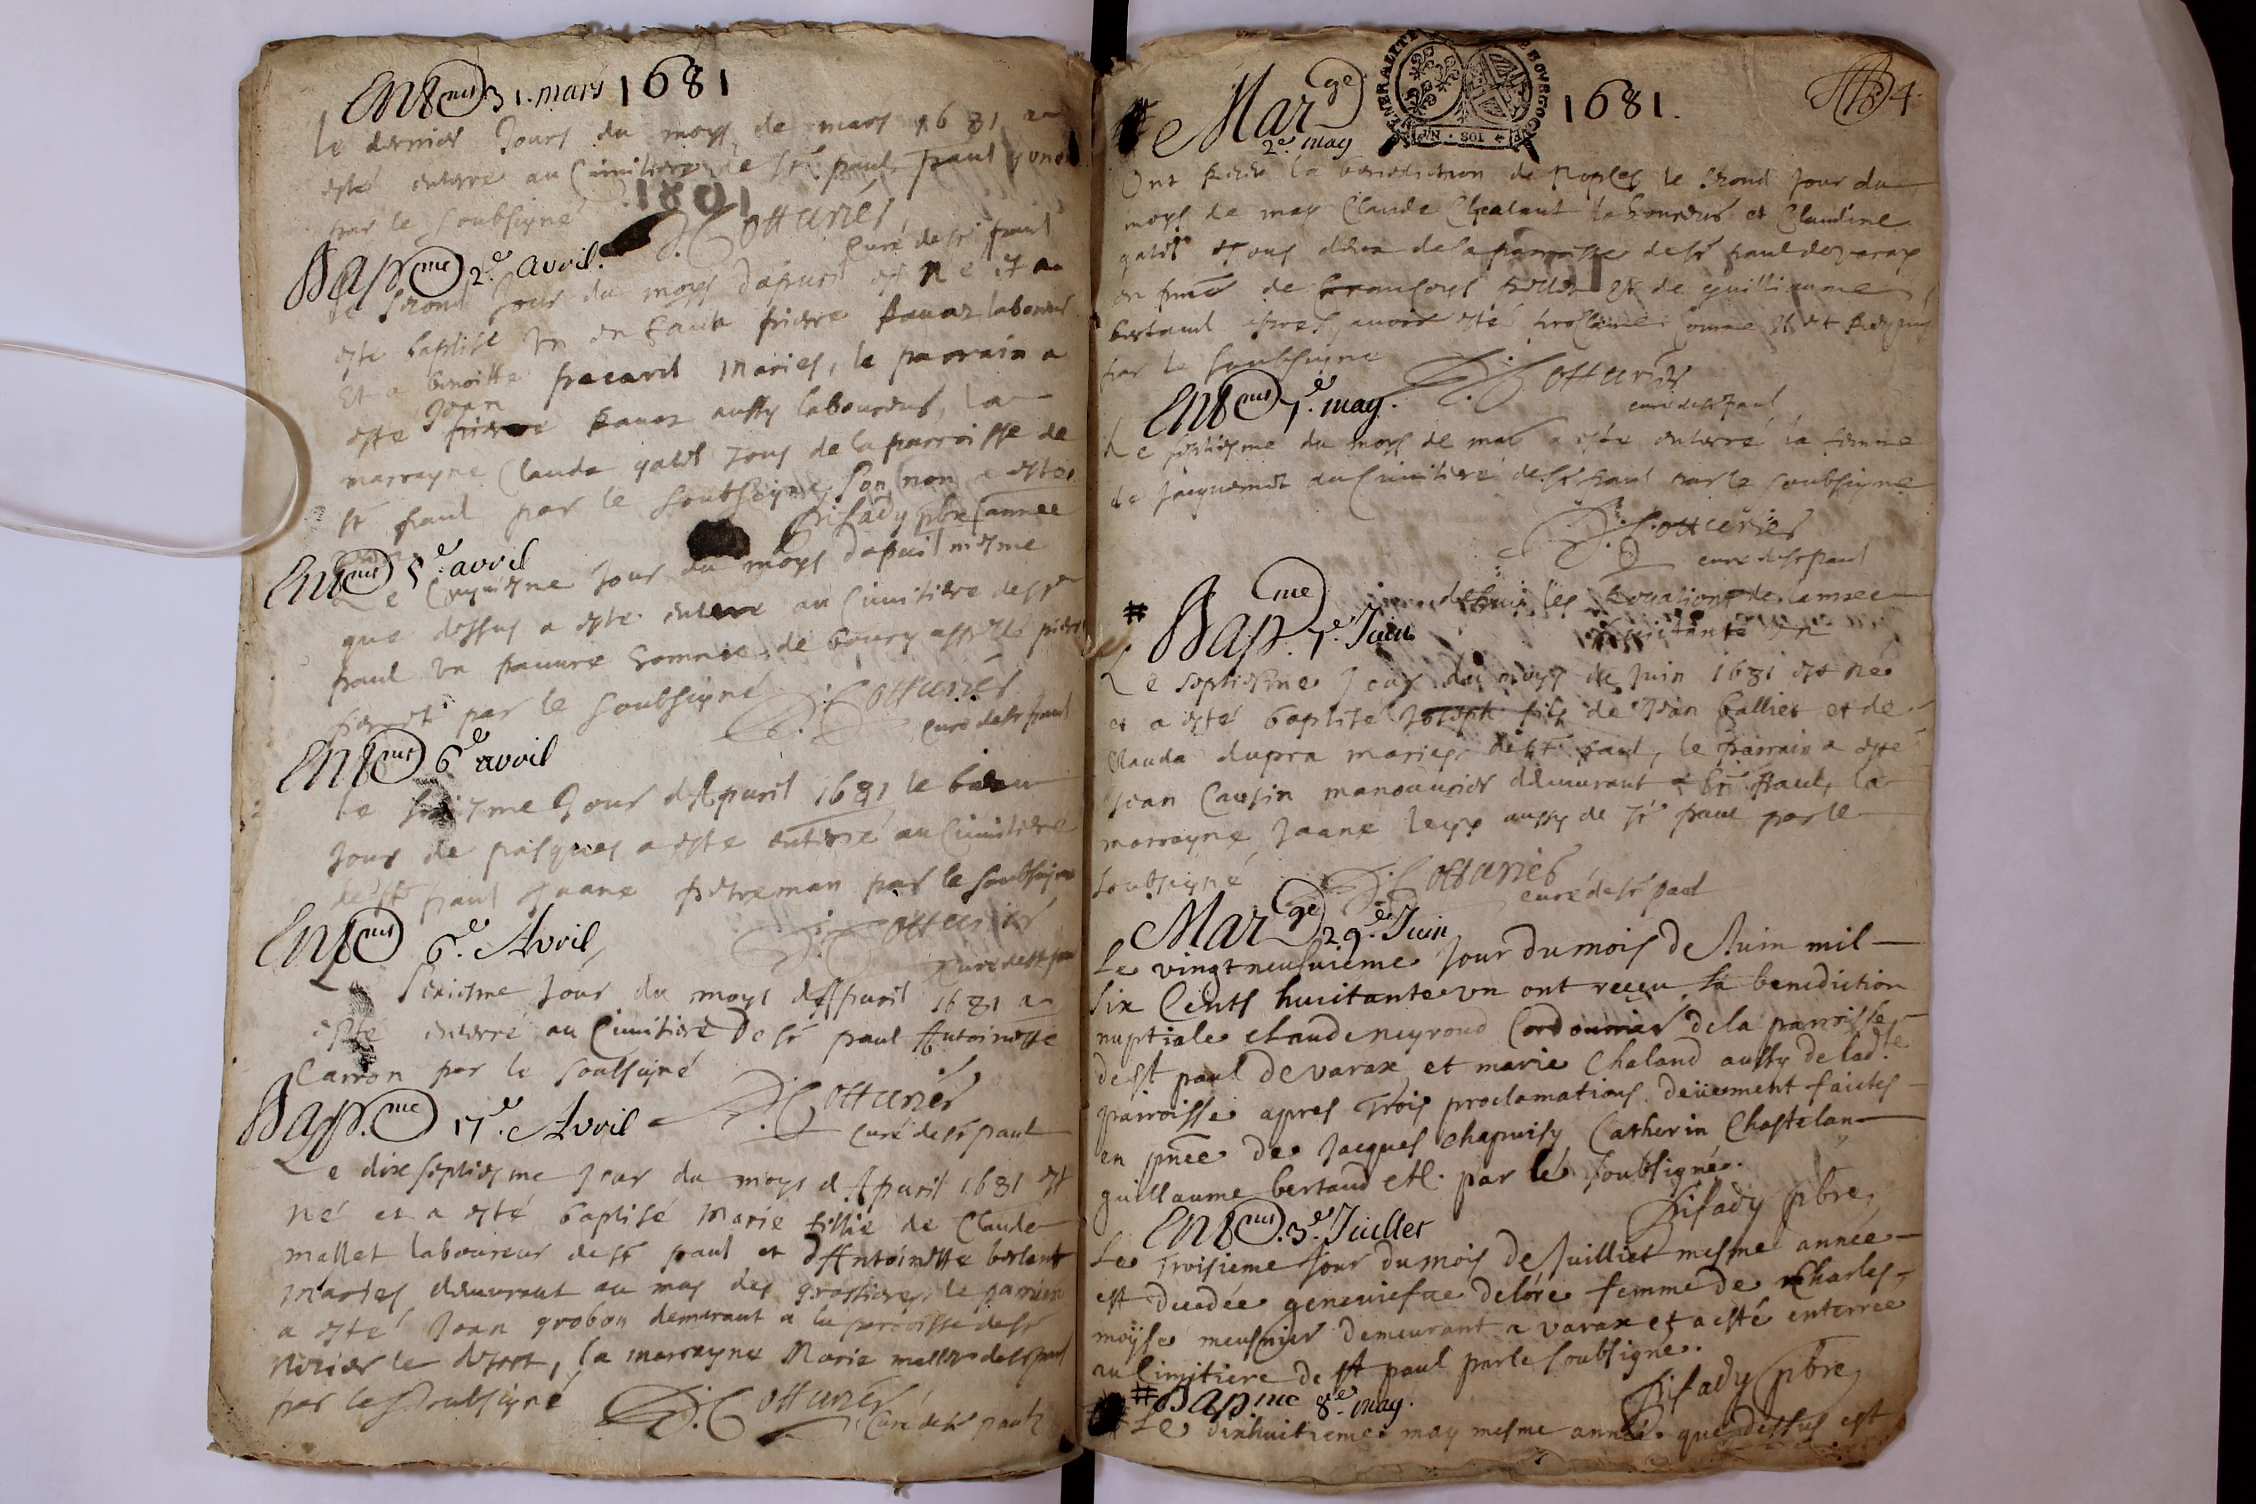 Ent^(mt) 31. mars 1681
le dernier Jours du moys de mars 1681 a
esté enterré au Cimitiere de st paul paul
par le soubsigné
1801
Cottarier
curé de st paul
Bap^(me) 2^e avril.
le second jour du moys dapuril est Né et a
esté baptisé un enfant pierre Ravaz laboureur
Et a benoitte maries, le parrain a
Jean
esté pierre Ravaz aussy laboureur, la
marrayne Clauda tous de la parroisse de
st paul par le soubsigné son non a esté
pbre lannee
Ent^(mt) 5^e. avril
Le Cinquiesme Jour du moys dapuril mesme
que dessus a esté enterré au Cimitiere de st
paul un pauvre homme de bourg appellé pierre
par le soubsigné Cottarier
curé de st paul
Ent^(mt) 6^e avril
le sixiesme Jour dApuril 1681 le
Jour de pasques a esté enterré au Cimitiere
de st paul Jeane par le soubsigné
Cottarier
curé de st paul
Ent^(mt) 6^e. Avril
Le Sixiesme Jour du moys dApuril 1681 a
esté enterré au Cimitiere De st paul Antoinette
Carron par le soubsigné
Cottarier
curé de st paul
Bap^(me) 17^e. Avril
Le dix septiesme Jour du moys dApuril 1681 est
Né et a esté baptisé Marie fillie de Claude
mallet laboureur de st paul et dAntoinette
Maries demeurant au mas des le parrein
a esté Jean grobon demeurant a la parroisse de st
Nizier le desert, la marrayne Marie mallet de st paul
par le soubsigné Cottarier
Curé de st paul
Mar^(ge)
2^e. may
GENERALITE DE BOVRGOGNE
SOL
1681.
4
Ont la benediction de Nopces le second Jour du
moys de may Claude Chalant laboureur et Claudine
tous deux de la parroisse de st paul de varax
en pnce de francoys et de guilliaume
bertaud apres avoir esté
par le soubsigne Cottarier
curé de st paul
Ent^(mt) 7^e. may.
Le septiesme du moys de may a esté enterré la femme
de Jacquemot au Cimitiere de st paul par le soubsigne
Cottarier
curé de st paul
#
Bap^(me). 7^e Juin
Le septiesme Jour du moys de Juin 1681 est né
et a esté baptisé Joseph fils de Jean Galliet et de
Clauda dupra maries de st paul, le parrain a esté
Jean Causin manouurier demeurant a st Paul, la
marrayne Jeane aussy de st paul par le
soubsigné Cottarier
curé de st paul
Mar^(ge) 29^e. Juin
Le vingt neufuieme Jour du mois de Juin mil
six Cents huictante un ont reçeu la benediction
nuptiale claude neyroud Cordonnier de la parroisse
de st paul de varax et marie Chaland aussy de lad^(te)
parroisse apres Trois proclamations deüement faictes
en pnce de Jacques Chapuisy Catherin Chastelan
guillaume bertaud etc. par le soubsigné.
pbre
Ent^(mt). 3^e. Juillet
Le Troisieme Jour du mois de Juilliet mesme année
est decedée geneuiefue delore femme de Charles
moyse meusnier demeurant a varax et a esté enterree
au Cimitiere de st paul par le soubsigne.
pbre
# Bap^(me) 8^e. may.
Le dixhuitieme may mesme année que dessus est